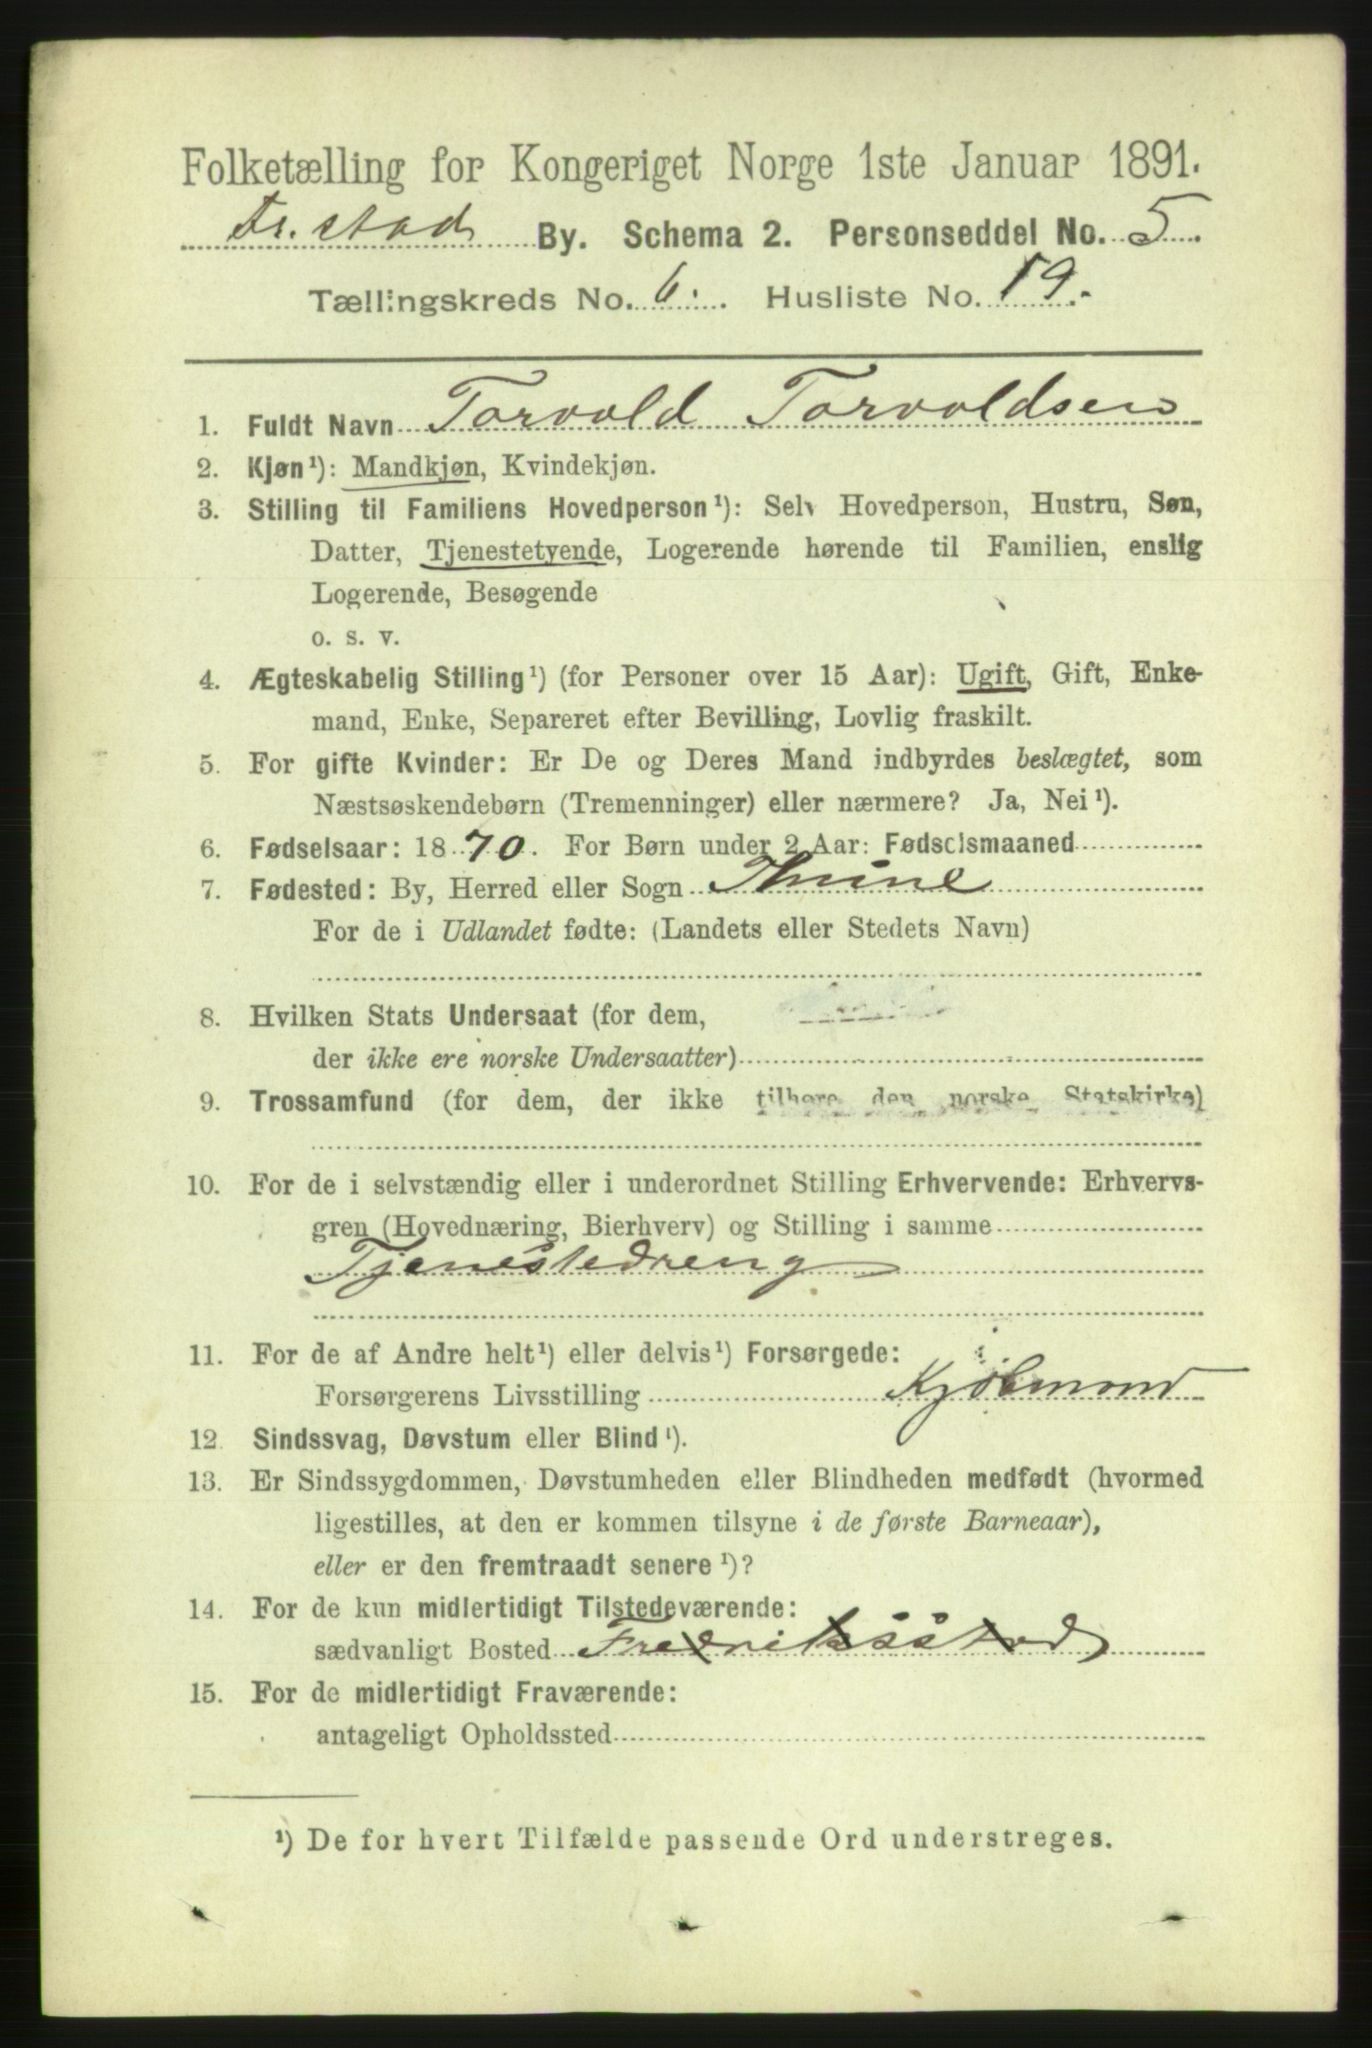 Folketælling for Kongeriget Norge 1ste Januar 1891.
Fr.stad By. Schema 2. Personseddel No. 5.
Tællingskreds No. 6. Husliste No. 19.
1. Fuldt Navn Torvald Torvaldsen
2. Kjøn¹): Mandkjøn, Kvindekjøn.
3. Stilling til Familiens Hovedperson¹): Selv Hovedperson, Hustru, Søn,
Datter, Tjenestetyende, Logerende hørende til Familien, enslig
Logerende, Besøgende
o. s. v.
4. Ægteskabelig Stilling¹) (for Personer over 15 Aar): Ugift, Gift, Enke-
mand, Enke, Separeret efter Bevilling, Lovlig fraskilt.
5. For gifte Kvinder: Er De og Deres Mand indbyrdes beslægtet, som
Næstsøskendebørn (Tremenninger) eller nærmere? Ja, Nei¹).
6. Fødselsaar: 1870. For Børn under 2 Aar: Fødselsmaaned
7. Fødested: By, Herred eller Sogn Thune
For de i Udlandet fødte: (Landets eller Stedets Navn)
8. Hvilken Stats Undersaat (for dem,
der ikke ere norske Undersaatter)
9. Trossamfund (for dem, der ikke tilhøre den norske Statskirke)
10. For de i selvstændig eller i underordnet Stilling Erhvervende: Erhvervs-
gren (Hovednæring, Bierhverv) og Stilling i samme
Tjenestedreng
11. For de af Andre helt¹) eller delvis¹) Forsørgede:
Forsørgerens Livsstilling Kjøbmand
12. Sindssvag, Døvstum eller Blind¹).
13. Er Sindssygdommen, Døvstumheden eller Blindheden medfødt (hvormed
ligestilles, at den er kommen tilsyne i de første Barneaar),
eller er den fremtraadt senere¹)?
14. For de kun midlertidigt Tilstedeværende:
sædvanligt Bosted Fredriksstad
15. For de midlertidigt Fraværende:
antageligt Opholdssted
¹) De for hvert Tilfælde passende Ord understreges.